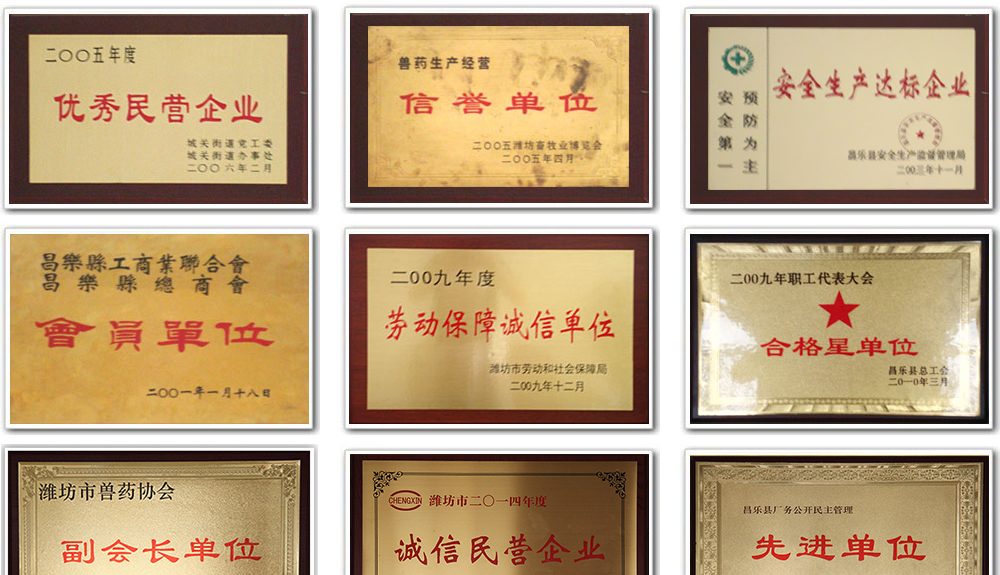 二〇〇五年度
优秀民营企业
城关街道党工委
城关街道办事处
二〇〇六年二月
兽药生产经营
信誉单位
二〇〇五潍坊畜牧业博览会
二〇〇五年四月
安全第一
预防为主
安全生产达标企业
昌乐县安全生产监督管理局
二00三年十一月
昌樂縣工商業聯合會
昌樂縣總商會
會員單位
二〇〇一年一月十八日
二00九年度
劳动保障诚信单位
潍坊市劳动和社会保障局
二00九年十二月
二00九年职工代表大会
合格星单位
昌乐县总工会
二0一0年三月
潍坊市兽药协会
副会长单位
CHENGXIN
潍坊市二〇一四年度
诚信民营企业
昌乐县厂务公开民主管理
先进单位